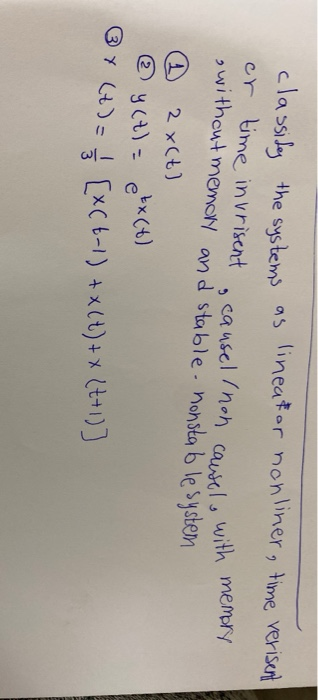 classify the systems as linear or nonliner, time verisent
or time invrisent, causel/non causel, with memory
, without memory and stable - nonstable system
① 2 x(t)
② y(t) = e^tx(t)
③ x (t) = 1/3 [x(t-1) + x(t) + x (t+1)]